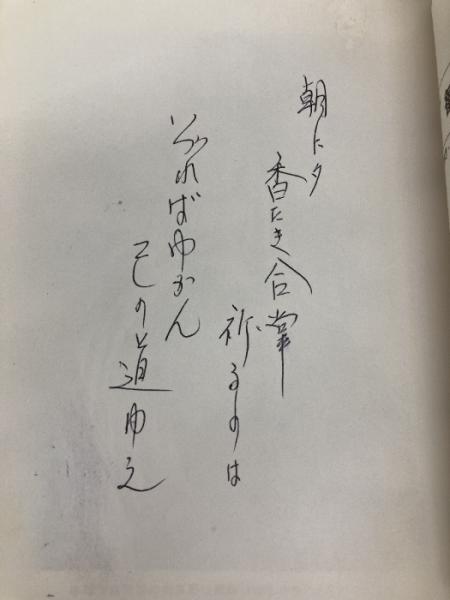 朝に夕
香たき合掌
祈るのは
いづればゆかん
己の道ゆえ